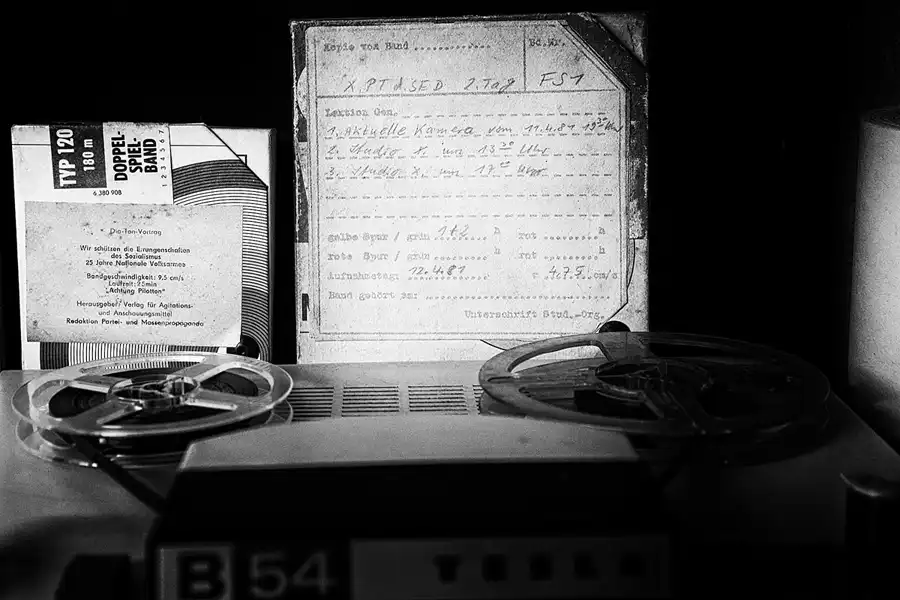 TYP 120
180 m
DOPPEL-
SPIEL-
BAND
1 2 3 4 5 6 7
6 380 908
Dia-Ton-Vortrag
Wir schützen die Errungenschaften
des Sozialismus
25 Jahre Nationale Volksarmee
Bandgeschwindigkeit: 9,5 cm/s
Laufzeit: 25min
"Achtung Piloton"
Herausgeber: Verlag für Agitations-
und Anschauungsmittel
Redaktion Partei- und Massenpropaganda
Kopie von Band .............
Bd.Nr.
X. PT d. SED 2. Tag
FS 1
Lektion Gen.
1. Aktuelle Kamera vom 11.4.81 19 30 Uhr
2. Studio X. um 13 30 Uhr
3. Studio X. um 17 Uhr
gelbe Spur / grün 1+2 h rot ......... h
rote Spur / grün ......... h rot ......... h
Aufnahmetag: 12.4.81 v 4.75 cm/s
Band gehört zu: .............
Unterschrift Stud.-Org.
B 54 TESLA